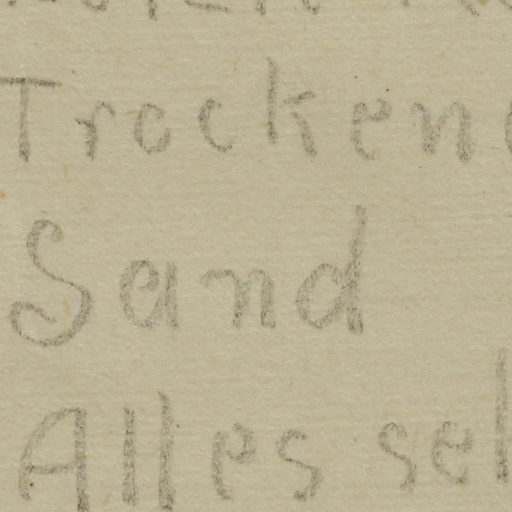 Trocken
Sand
Alles sel